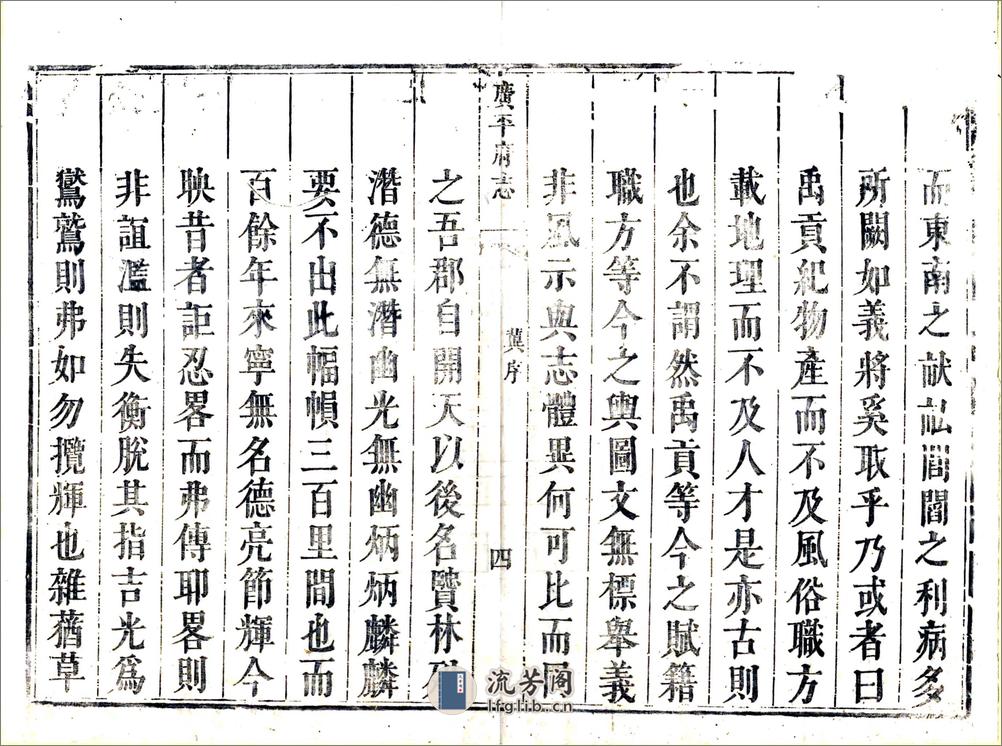 而東南之畎畝閭閻之利病多
所闕如義將奚取乎乃或者曰
禹貢紀物產而不及風俗職方
載地理而不及人才是亦古則
也余不謂然禹貢等今之賦籍
職方等今之輿圖文無標舉義
非風示與志體異何可比而同
廣平府志
冀序
四
之吾郡自開天以後名賢林列
潛德無潛幽光無幽炳炳麟麟
要不出此幅幀三百里間也而
百餘年來寧無名德亮節輝今
映昔者詎忍畧而弗傳耶畧則
非誼濫則失衡脫其指吉光為
鸑鷟則弗如勿攬輝也雜蕕草
流芳阁
lfglib.cn